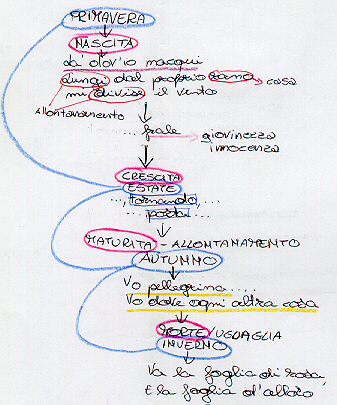 PRIMAVERA
NASCITA
da dov'io nacqui
lungi dal proprio ramo → casa
mi divise il vento
allontanamento
... frale → giovinezza
innocenza
CRESCITA
ESTATE
...tornando,...
... portai...
MATURITÀ - ALLONTANAMENTO
AUTUNNO
Vo pellegrina....
Vo dove ogni altra cosa
MORTE/UGUAGLIA
INVERNO
Va la foglia di rosa,
E la foglia d'alloro